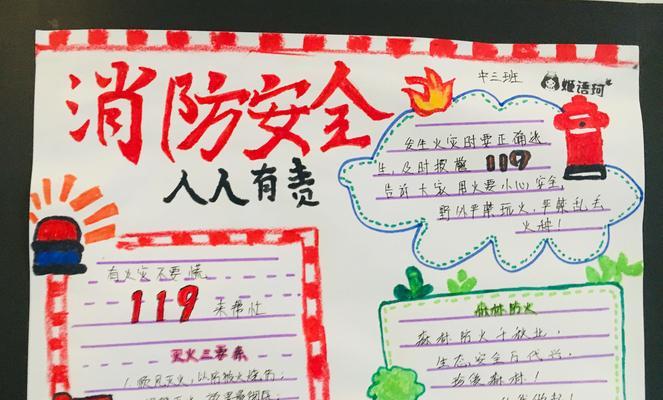 消防安全
人人有责
中三班
姬语珂
发生火灾时要正确逃
生,及时报警 119
告诉大家用火要小心安全,
野外严禁玩火,严禁乱丢
火种!
有火灾不要慌
119 来帮忙
灭火三要素
1.顺风灭火,以防被火烧伤;
森林防火
森林防火千秋业,
生态安全万代兴,